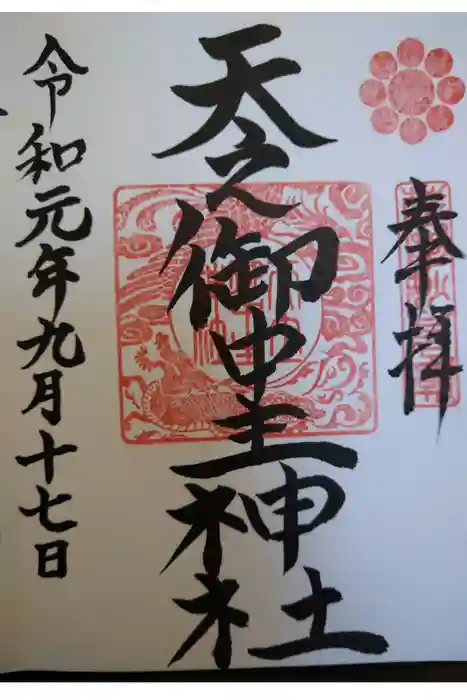 奉拝
天之御中主神社
令和元年九月十七日